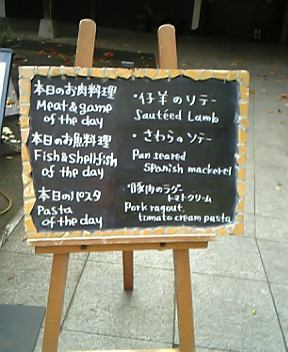 本日のお肉料理
Meat & game
of the day
・仔羊のソテー
Sautéed Lamb
本日のお魚料理
Fish & shellfish
of the day
・さわらのソテー
Pan seared
Spanish mackerel
本日のパスタ
Pasta
of the day
・豚肉のラグー
トマトクリーム
Pork ragout,
tomato cream pasta